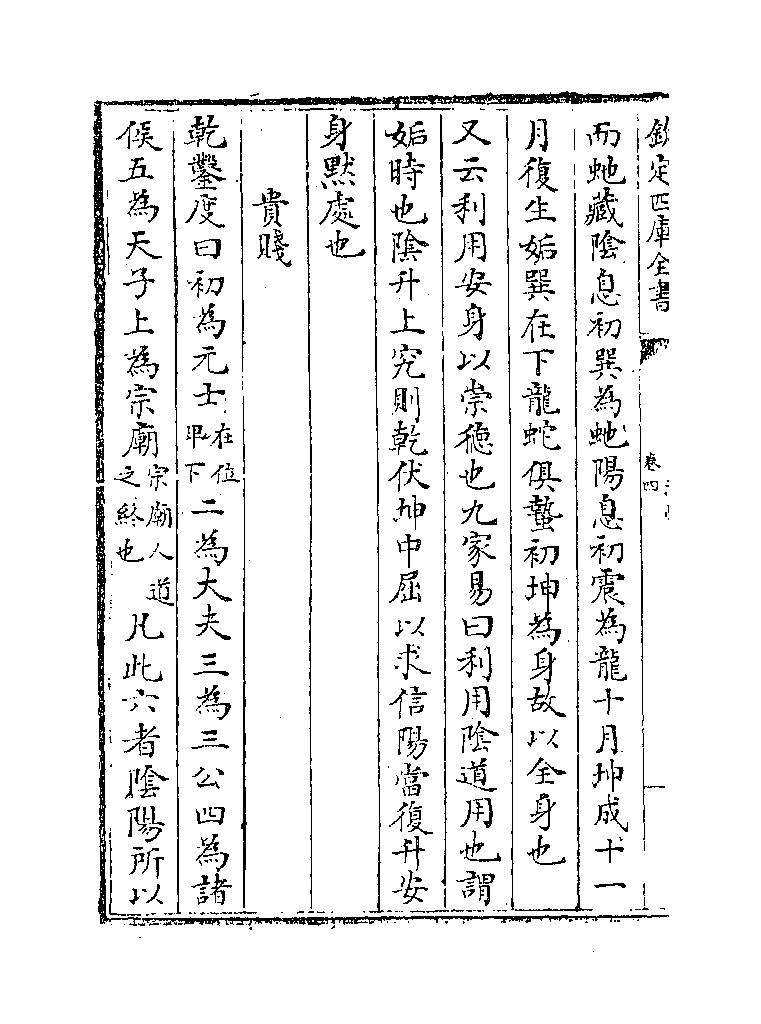 欽定四庫全書
卷四
而虵藏陰息初巽為虵陽息初震為龍十月坤成十一
月復生姤巽在下龍蛇俱蟄初坤為身故以全身也
又云利用安身以崇徳也九家易曰利用陰道用也謂
姤時也陰升上究則乾伏坤中屈以求信陽當復升安
身黙處也
貴賤
乾鑿度曰初為元士在位卑下二為大夫三為三公四為諸
侯五為天子上為宗廟宗廟人道之終也凡此六者陰陽所以